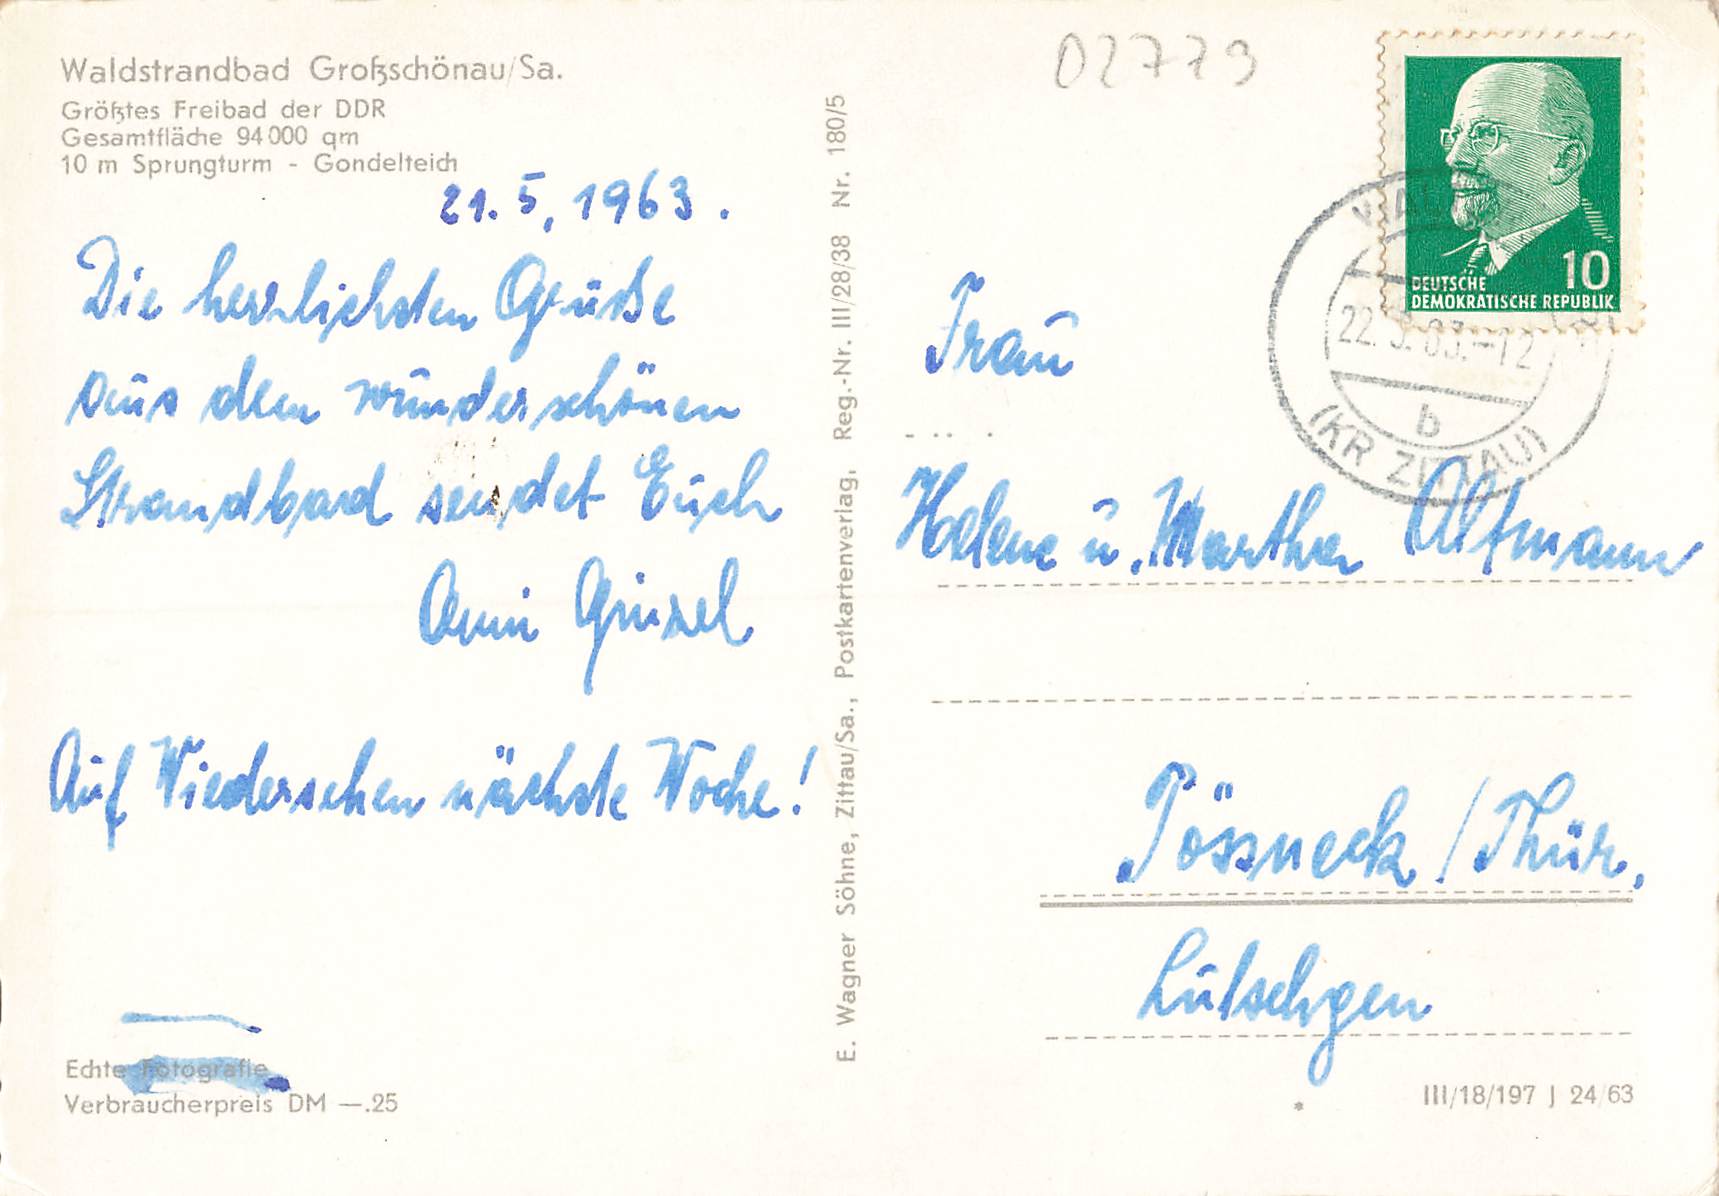 Waldstrandbad Großschönau/Sa.
Größtes Freibad der DDR
Gesamtfläche 94000 qm
10 m Sprungturm - Gondelteich
21.5, 1963.
Die herzlichsten Grüße
aus dem wunderschönen
Strandbad sendet Euch
Auf Wiedersehen nächste Woche!
Echte Fotografie
Verbraucherpreis DM —.25
E. Wagner Söhne, Zittau/Sa., Postkartenverlag, Reg.-Nr. III/28/38 Nr. 180/5
02779
10
DEUTSCHE
DEMOKRATISCHE REPUBLIK
b
(KR ZITTAU)
Frau
Helene u. Martha Altmann
Pössneck / Thür.
III/18/197 J 24/63